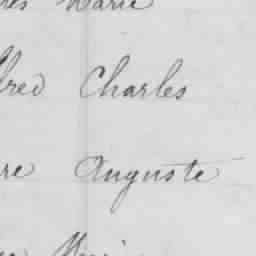 Marie
lred Charles
re Auguste